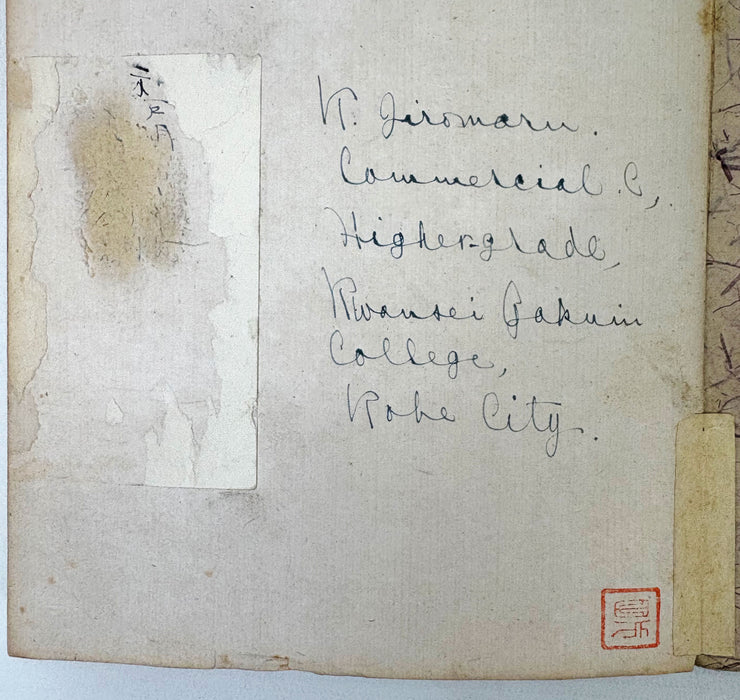 K. Jiromaru.
Commercial. C,
Higher-grade,
Kwansei Gakuin
College,
Kobe City.